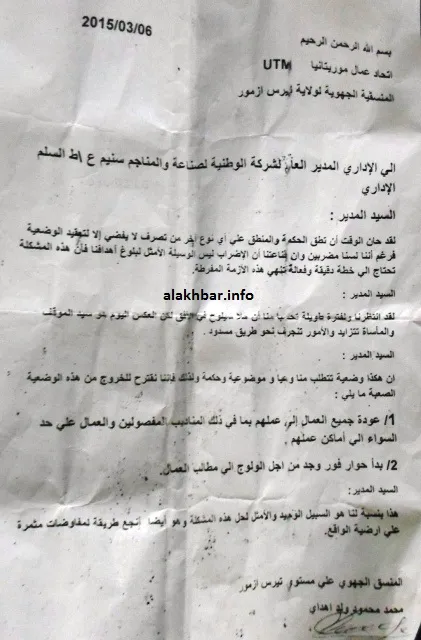 2015/03/06
بسم الله الرحمن الرحيم
اتحاد عمال موريتانيا UTM
المنسقية الجهوية لولاية تيرس ازمور
الي الإداري المدير العام لشركة الوطنية لصناعة والمناجم سنيم ع /ط السلم
الإداري
السيد المدير :
لقد حان الوقت أن نطق الحكمة والمنطق علي أي نوع آخر من تصرف لا يفضي إلا لتعقيد الوضعية
فرغم أننا لسنا مضربين وان قناعتنا أن الاضراب ليس الوسيلة الأمثل لبلوغ أهدافنا فان هذه المشكلة
تحتاج الي خطة دقيقة وفعالة تنهي هذه الأزمة المفرطة.
alakhbar.info
السيد المدير :
لقد انتظرنا ولفترة طويلة منا أن سيلوح في الأفق لكن العكس اليوم هو سيد الموقف
والمأساة تتزايد والأمور تنجرف نحو طريق مسدود .
السيد المدير :
ان هكذا وضعية تتطلب منا وعيا و موضوعية وحكمة ولذلك فاننا نقترح للخروج من هذه الوضعية
الصعبة ما يلي :
1/ عودة جميع العمال إلي عملهم بما في ذلك المناديب المفصولين والعمال علي حد
السواء الي أماكن عملهم .
2/ بدأ حوار فور وجد من اجل الولوج الي مطالب العمال.
السيد المدير:
هذا بنسبة لنا هو السبيل الوحيد والأمثل لحل هذه المشكلة وهو أيضا أنجع طريقة لمفاوضات مثمرة
علي ارضية الواقع.
المنسق الجهوي علي مستوي تيرس ازمور
محمد محمود ولد اهداي